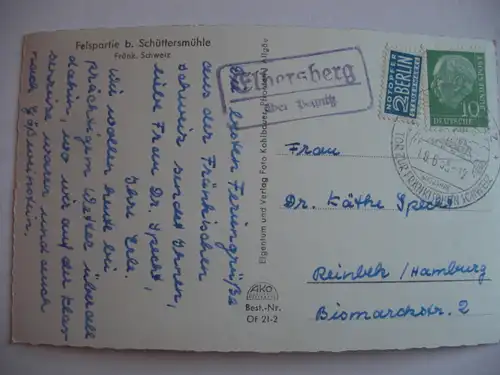 Felspartie b. Schüttersmühle
Fränk. Schweiz
Die besten Feriengrüße
aus der Fränkischen
Schweiz sendet Ihnen,
liebe Frau Dr. Specht,
Ihre
Wir wollen heute bei
prächtigem Wetter überall
dahin, wo wir auf der
waren und
nach Gößweinstein.
Elbersberg
über Pegnitz
Eigentum und Verlag Foto Kohlbauer, Pfronten/Allgäu
AKO
Best.-Nr.
OF 21-2
NOTOPFER
2 BERLIN
STEUERMARKE
10
DEUTSCHE
BUNDESPOST
TOR ZUR FRÄNKISCHEN SCHWEIZ
Frau
Dr. Käthe Specht
Reinbek/Hamburg
Bismarckstr. 2